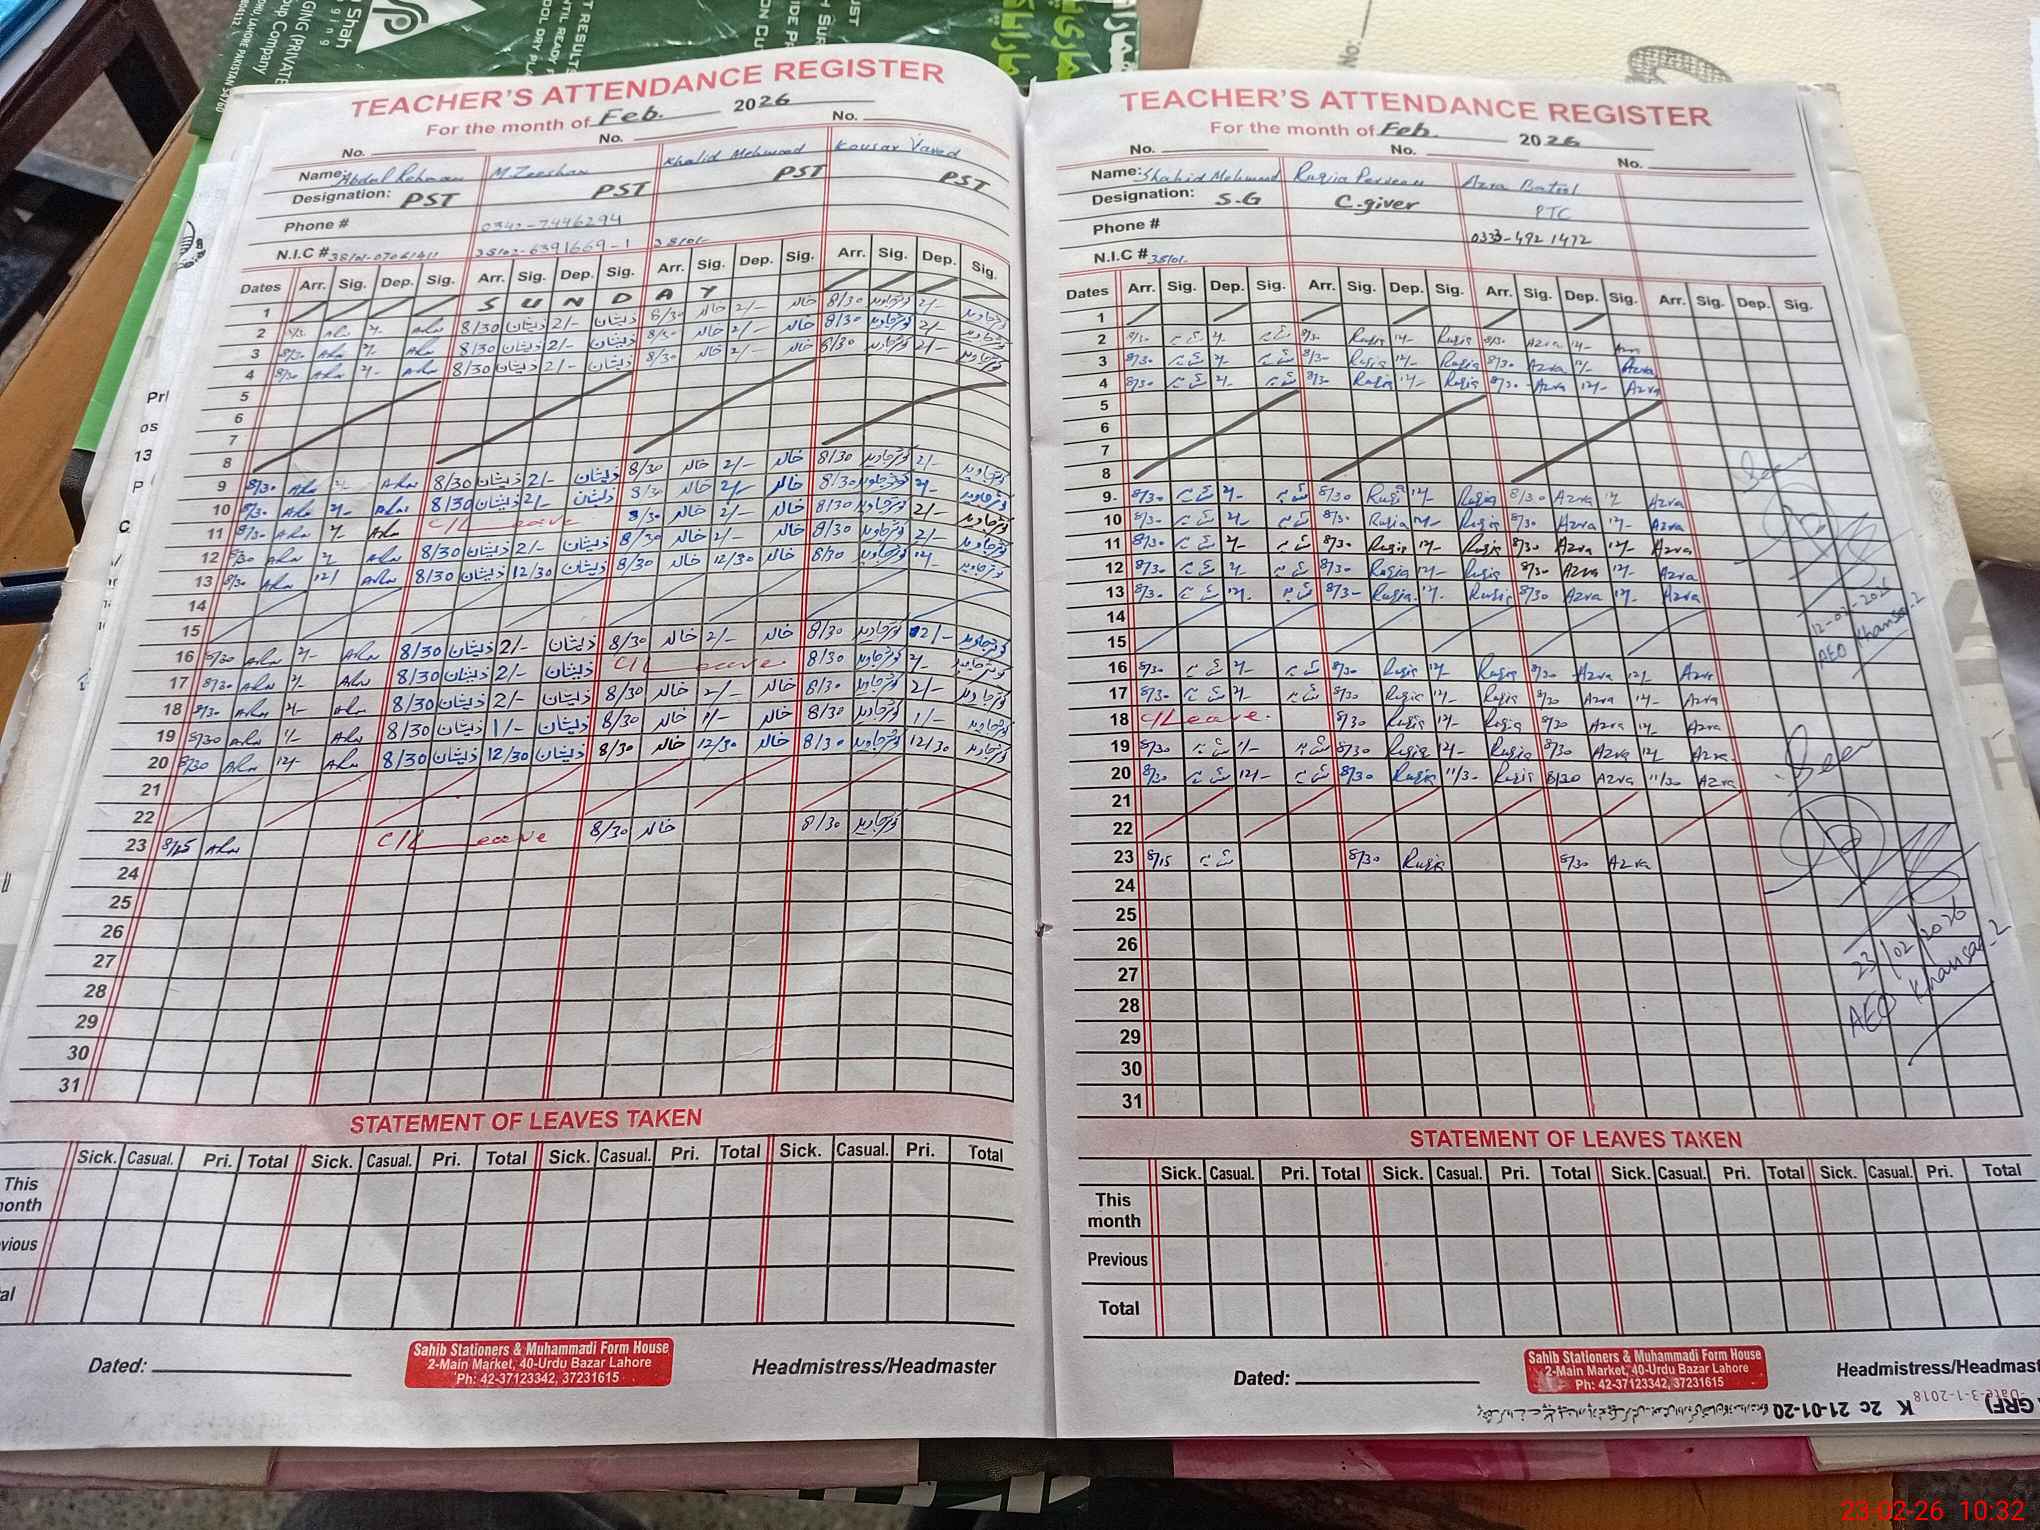 TEACHER'S ATTENDANCE REGISTER
For the month of Feb. 2026
No. No. No.
Name: Abdul Rehman M. Zeeshan Khalid Mehmood Kousar Javed
Designation: PST PST PST PST
Phone # 0342-7446294
N.I.C # 38101-0706 38102-6391669-1 38101-
Dates Arr. Sig. Dep. Sig. Arr. Sig. Dep. Sig. Arr. Sig. Dep. Sig. Arr. Sig. Dep. Sig.
1 S U N D A Y
2 8/30 ذیشان 2/- ذیشان 8/30 خالد 2/- خالد 8/30 کوثر جاوید 2/- کوثر جاوید
3 8/30 2/- 8/30 ذیشان 2/- ذیشان 8/30 خالد 2/- خالد 8/30 کوثر جاوید 2/- کوثر جاوید
4 8/30 2/- 8/30 ذیشان 2/- ذیشان 8/30 خالد 2/- خالد 8/30 کوثر جاوید 2/- کوثر جاوید
5
6
7
8
9 8/30 8/30 ذیشان 2/- ذیشان 8/30 خالد 2/- خالد 8/30 کوثر جاوید 2/- کوثر جاوید
10 8/30 2/- 8/30 ذیشان 2/- ذیشان 8/30 خالد 2/- خالد 8/30 کوثر جاوید 2/- کوثر جاوید
11 8/30 2/- C/Leave 8/30 خالد 2/- خالد 8/30 کوثر جاوید 2/- کوثر جاوید
12 8/30 2/- 8/30 ذیشان 2/- ذیشان 8/30 خالد 2/- خالد 8/30 کوثر جاوید 2/- کوثر جاوید
13 8/30 12/ 8/30 ذیشان 12/30 ذیشان 8/30 خالد 12/30 خالد 8/30 کوثر جاوید 12/- کوثر جاوید
14
15
16 8/30 2/- 8/30 ذیشان 2/- ذیشان 8/30 خالد 2/- خالد 8/30 کوثر جاوید 2/- کوثر جاوید
17 8/30 2/- 8/30 ذیشان 2/- ذیشان C/Leave 8/30 کوثر جاوید 2/- کوثر جاوید
18 8/30 2/- 8/30 ذیشان 2/- ذیشان 8/30 خالد 2/- خالد 8/30 کوثر جاوید 2/- کوثر جاوید
19 8/30 1/- 8/30 ذیشان 1/- ذیشان 8/30 خالد 1/- خالد 8/30 کوثر جاوید 1/- کوثر جاوید
20 8/30 12/- 8/30 ذیشان 12/30 ذیشان 8/30 خالد 12/30 خالد 8/30 کوثر جاوید 12/30 کوثر جاوید
21
22
23 8/15 C/Leave 8/30 خالد 8/30 کوثر جاوید
24
25
26
27
28
29
30
31
STATEMENT OF LEAVES TAKEN
Sick. Casual. Pri. Total Sick. Casual. Pri. Total Sick. Casual. Pri. Total Sick. Casual. Pri. Total
This
month
Previous
Total
Dated:
Sahib Stationers & Muhammadi Form House
2-Main Market, 40-Urdu Bazar Lahore
Ph: 42-37123342, 37231615
Headmistress/Headmaster
TEACHER'S ATTENDANCE REGISTER
For the month of Feb. 2026
No. No. No.
Name: Shahid Mehmood Ruqia Perveen Azra Batool
Designation: S.G C.giver PTC
Phone # 0333-4921472
N.I.C # 38101-
Dates Arr. Sig. Dep. Sig. Arr. Sig. Dep. Sig. Arr. Sig. Dep. Sig. Arr. Sig. Dep. Sig.
1
2 8/30 2/- 8/30 Ruqia 12/- Ruqia 8/30 Azra 12/- Azra
3 8/30 2/- 8/30 Ruqia 12/- Ruqia 8/30 Azra Azra
4 8/30 2/- 8/30 Ruqia 12/- Ruqia 8/30 Azra 12/- Azra
5
6
7
8
9 8/30 2/- 8/30 Ruqia 12/- Ruqia 8/30 Azra 12/- Azra
10 8/30 2/- 8/30 Ruqia 12/- Ruqia 8/30 Azra 12/- Azra
11 8/30 2/- 8/30 Ruqia 12/- Ruqia 8/30 Azra 12/- Azra
12 8/30 2/- 8/30 Ruqia 12/- Ruqia 8/30 Azra 12/- Azra
13 8/30 12/- 8/30 Ruqia 12/- Ruqia 8/30 Azra 12/- Azra
14
15
16 8/30 2/- 8/30 Ruqia 12/- Ruqia 8/30 Azra 12/- Azra
17 8/30 2/- 8/30 Ruqia 12/- Ruqia 8/30 Azra 12/- Azra
18 C/Leave. 8/30 Ruqia 12/- Ruqia 8/30 Azra 12/- Azra
19 8/30 1/- 8/30 Ruqia 12/- Ruqia 8/30 Azra 12/- Azra
20 8/30 12/- 8/30 Ruqia 11/30 Ruqia 8/30 Azra 11/30 Azra
21
22
23 8/15 8/30 Ruqia 8/30 Azra
24
25
26
27
28
29
30
31
Seen
12-02-2026
AEO Khansar-2
Seen
23/02/2026
AEO Khansar-2
STATEMENT OF LEAVES TAKEN
Sick. Casual. Pri. Total Sick. Casual. Pri. Total Sick. Casual. Pri. Total Sick. Casual. Pri. Total
This
month
Previous
Total
Dated:
Sahib Stationers & Muhammadi Form House
2-Main Market, 40-Urdu Bazar Lahore
Ph: 42-37123342, 37231615
Headmistress/Headmast
23-02-26 10:32